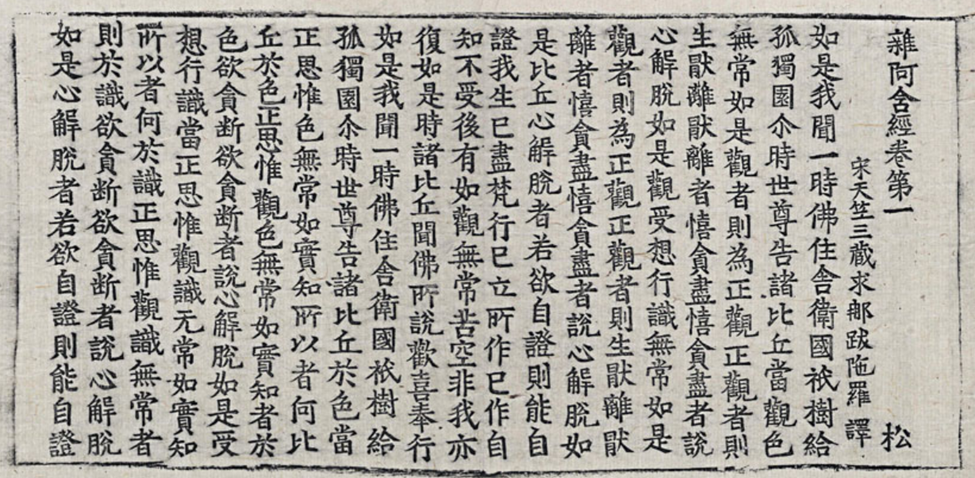 雜阿含經卷第一 松
宋天竺三藏求那跋陁羅 譯
如是我聞一時佛住舍衛國祇樹給
孤獨園尒時世尊告諸比丘當觀色
無常如是觀者則為正觀正觀者則
生猒離猒離者憘貪盡憘貪盡者說
心解脫如是觀受想行識無常如是
觀者則為正觀正觀者則生猒離猒
離者憘貪盡憘貪盡者說心解脫如
是比丘心解脫者若欲自證則能自
證我生已盡梵行已立所作已作自
知不受後有如觀無常苦空非我亦
復如是時諸比丘聞佛所說歡喜奉行
如是我聞一時佛住舍衛國祇樹給
孤獨園尒時世尊告諸比丘於色當
正思惟色無常如實知所以者何比
丘於色正思惟觀色無常如實知者於
色欲貪断欲貪断者說心解脫如是受
想行識當正思惟觀識无常如實知
所以者何於識正思惟觀識無常者
則於識欲貪断欲貪断者說心解脫
如是心解脫者若欲自證則能自證